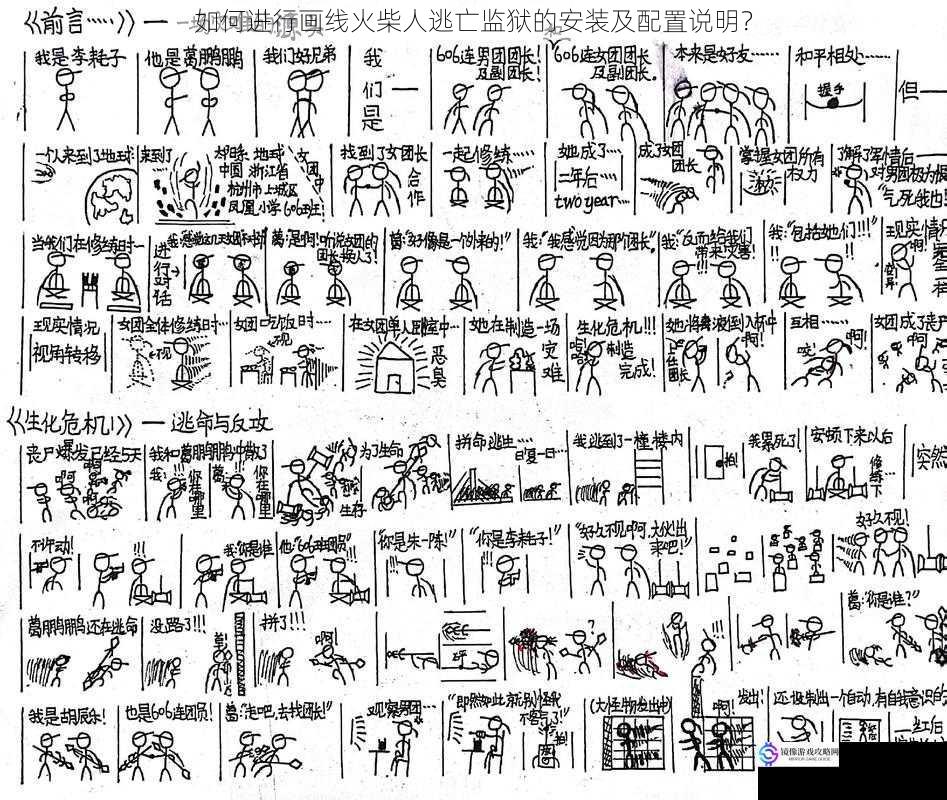 如何进行画线火柴人逃亡监狱的安装及配置说明？
《前言……》一
我是李耗子
他是葛鹏鹏
我们好兄弟
我们是一
606连男团团长！及副团长！
和
606连女团团长及副团长。
本来是好友……
和平相处……
握手
但一
一个人来到了地球
来到了
太阳系 地球 中国 浙江省 杭州市上城区 凤凰小学606班
找到了女团长
合作
一起修练……
她成了…
二年后…
two year…
成了女团团长
掌握女团所有权力
了解了军情后一
当我们在修练时一
进行对话
我："我感觉因为那个团长。"
葛："好像是一个外来的！"
我："反而给我们带来灾害！
我："包括她们！！！"
现实情况
视角转移
女团全体修练时…
女团吃饭时…
在女团单人卧室中…
恶臭
她在制造一场灾难
生化危机！！！
制造完成！
互相……
咬
啊！
《生化危机1》一 逃命与反攻
丧尸爆发已经5天
啊
我和葛鹏鹏鹏中散了
我：你在哪里
葛：你在哪里
为了生命
生存
拼命逃生…
日复一日…
我逃到了一橦楼内
我累死了
安顿下来以后
修练一下
突然
不许动！
！！！
我：你是谁
他："606班团员"
"你是朱一陈！"
"你是李耗子！"
"好久不见啊，大伙出来吧！"
好久不见！
葛鹏鹏鹏还在逃命
没路了！！！
拼了！！！
啊！
？
！！！
葛："你是谁？"
我是胡辰乐！
也是606连团员！
葛："走吧，去找团长！"
观察男团…
"即然如此，就别怪我不客气了！"
（大怪物发出中）
啊！
发出！
还没制出一个自动，有自我意识的
一红后
镜像游戏攻略网
MIRROR GAME GUIDE